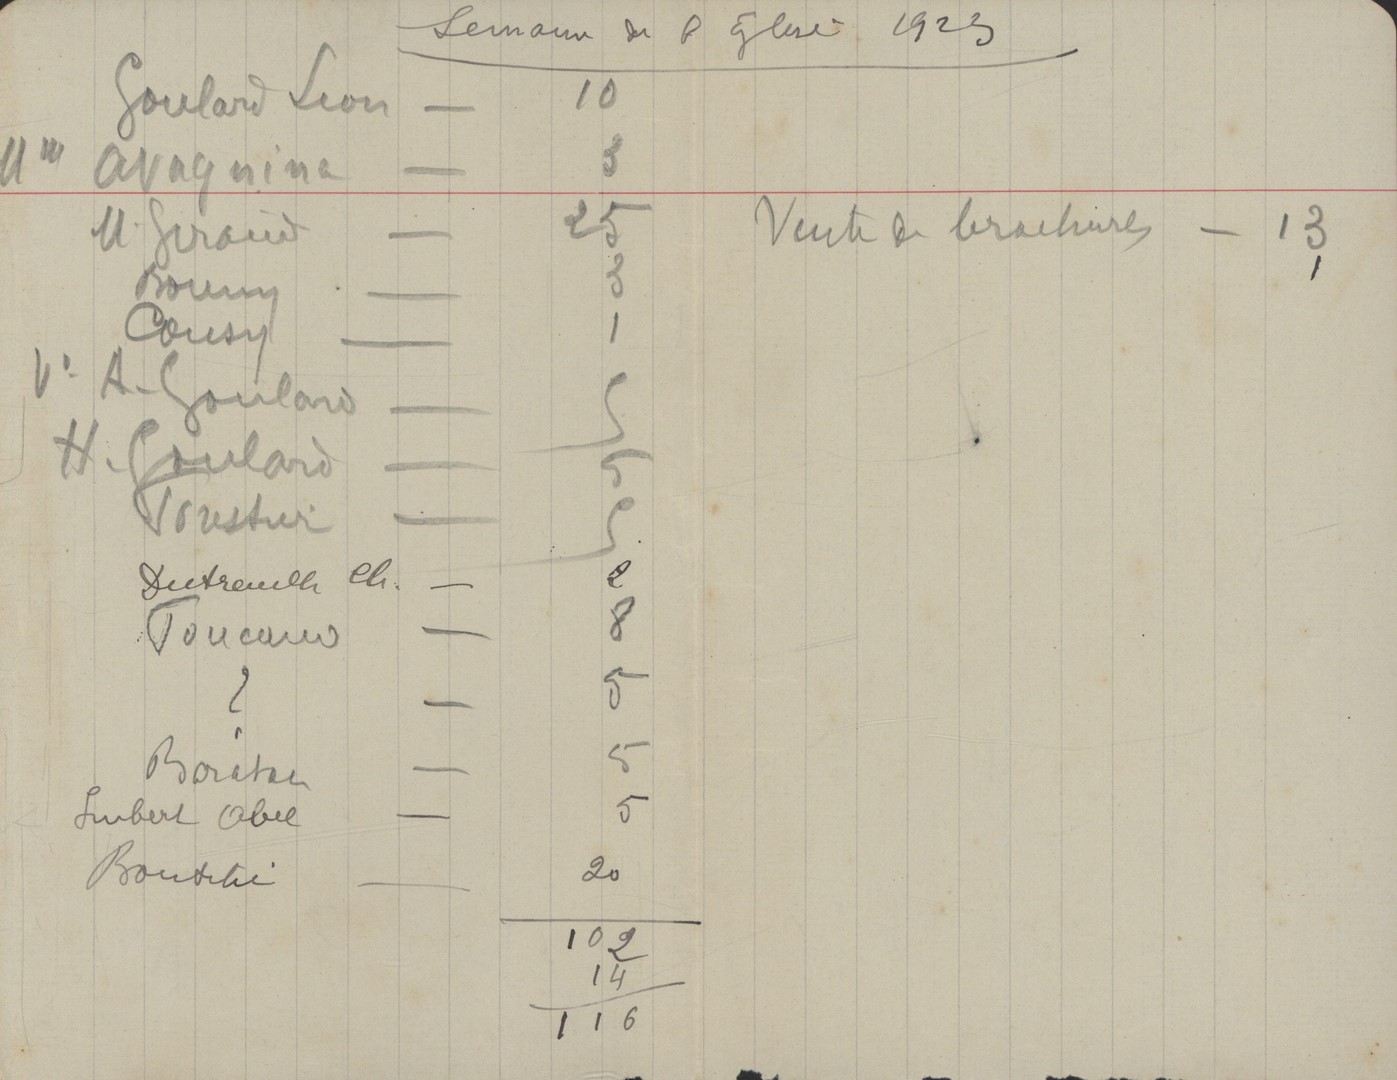 Semaine de l'Eglise 1923
Goulard Léon — 10
Mme Avagnina — 3
M. Giraud — 25
Boumy — 3
Cousy — 1
Vve A. Goulard — 5
H. Goulard — 5
Toustui — 5
Dutreuilh Ch. — 2
Toucaud — 8
? — 5
— 5
Imbert Abel — 5
— 20
102
14
116
Vente de brochures — 13
1